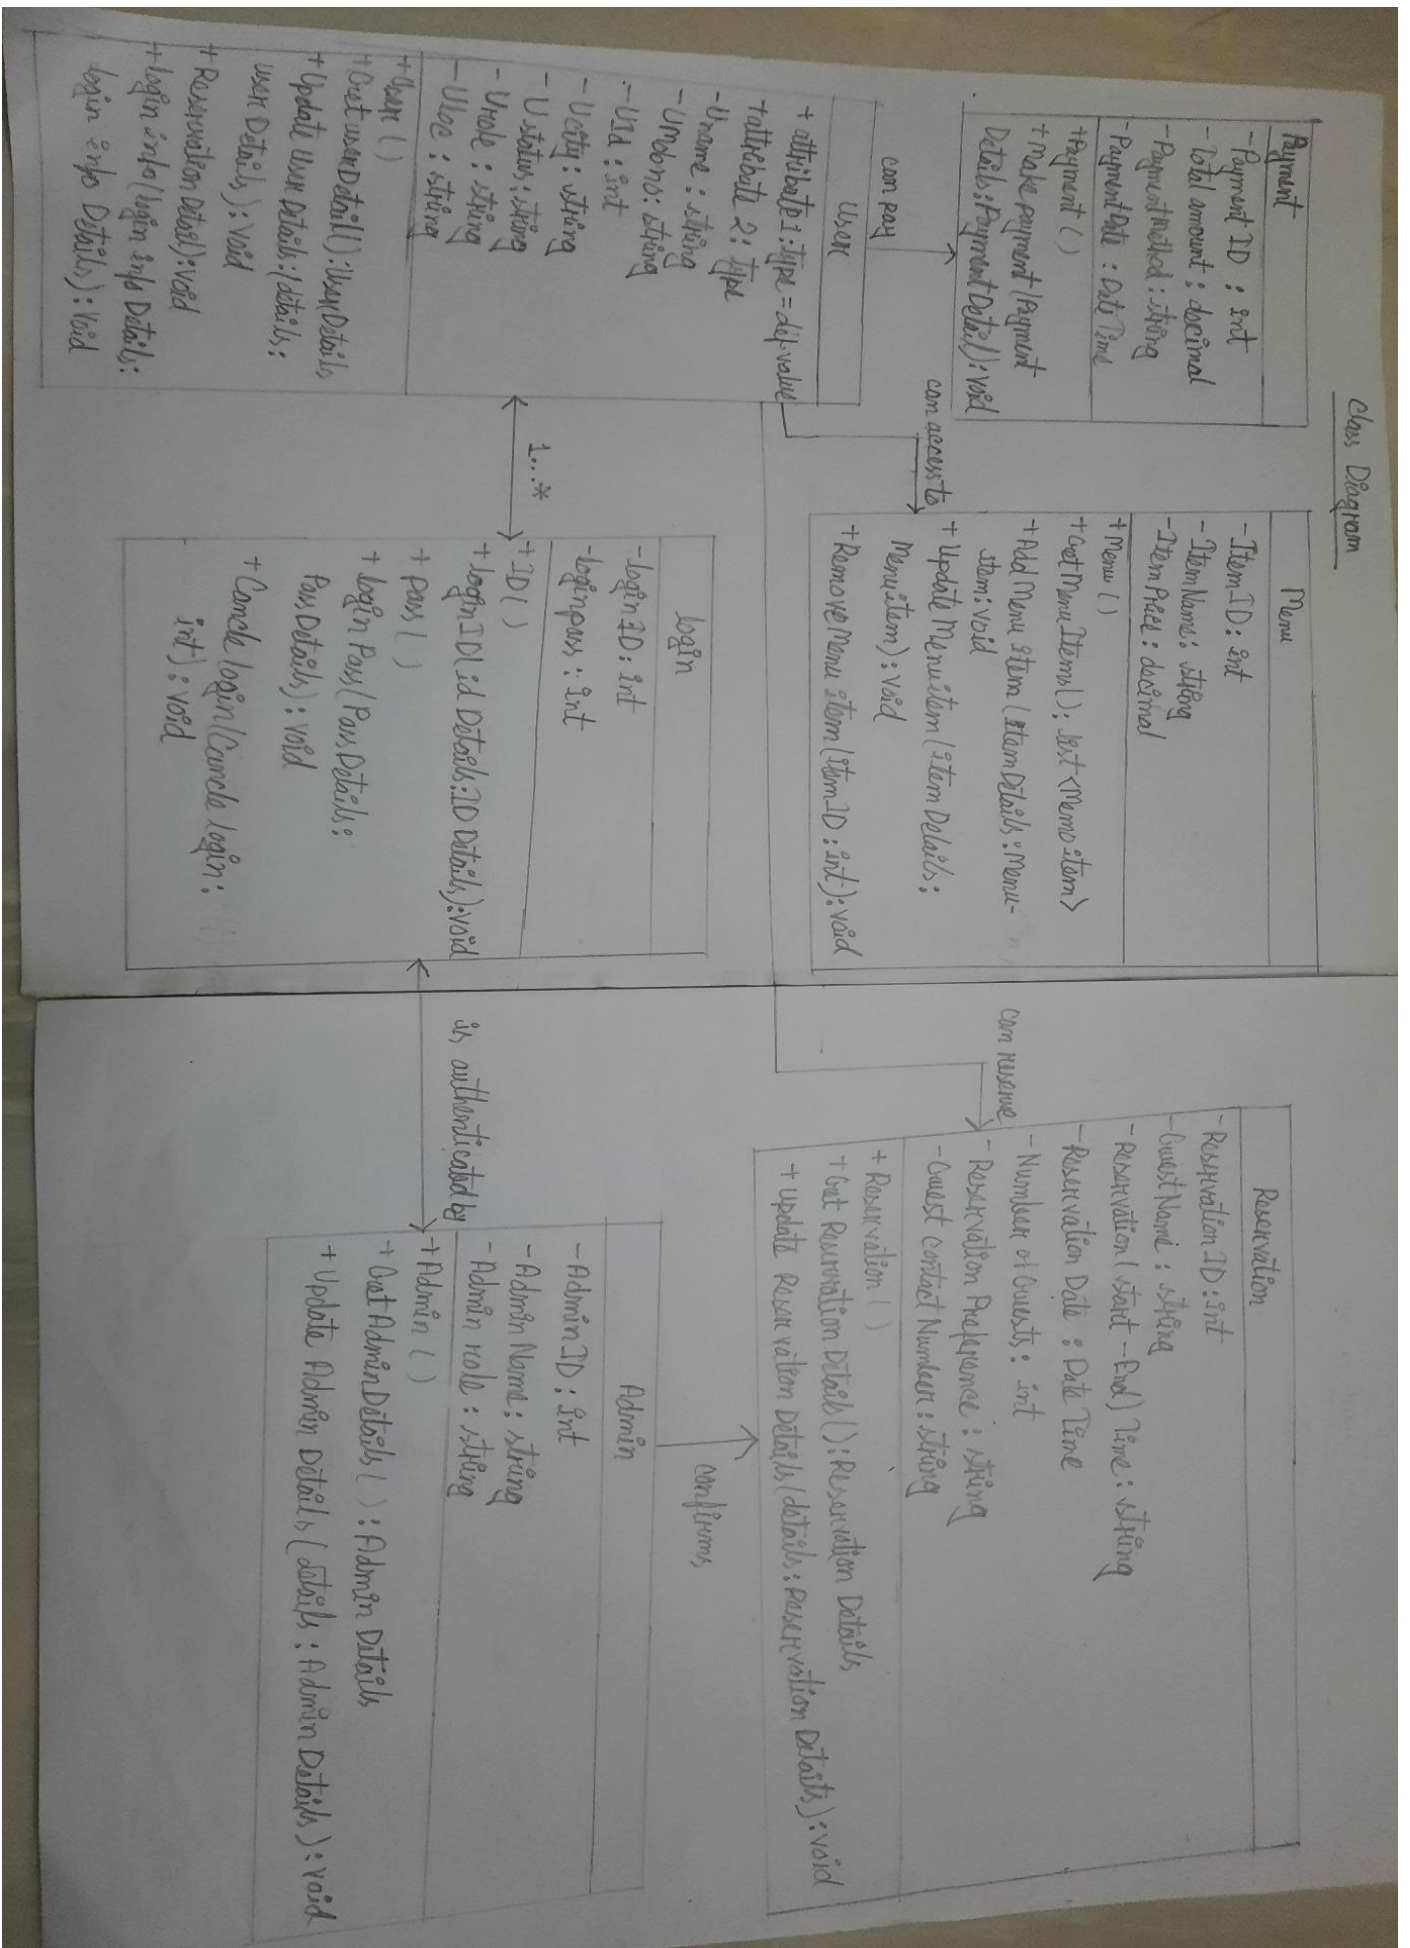 Class Diagram
Payment
- Payment ID : int
- Total amount : decimal
- Payment Method : string
- Payment Date : Date Time
+ Payment ( )
+ Make payment ( Payment
Details : Payment Detail) : void
can pay
Menu
- Item ID : int
- Item Name : string
- Item Price : decimal
+ Menu ( )
+ Get Menu Items ( ) : List <Memo item>
+ Add Menu item ( item Details : Menu-
item : void
+ Update Menu item ( item Details :
Menu item ) : void
+ Remove Menu item ( item ID : int ) : void
can access to
Reservation
- Reservation ID : int
- Guest Name : string
- Reservation ( start - End) Time : string
- Reservation Date : Date Time
- Number of Guests : int
- Reservation Preference : string
- Guest contact Number : string
+ Reservation ( )
+ Get Reservation Details ( ) : Reservation Details
+ Update Reservation Details ( details : Reservation Details ) : void
can reserve
User
+ attribute 1 : type = def value
+ attribute 2 : type
- Uname : string
- Umobno : string
- UId : int
- Ucity : string
- Ustatus : string
- Urole : string
- Uloc : string
+ User ( )
+ Get user Detail ( ) : User Details
+ Update User Details : (details :
user Details ) : void
+ Reservation Detail) : void
+ login info ( login info Details :
login info Details ) : void
1...*
login
- login ID : int
- login pass : int
+ ID ( )
+ login ID ( id Details : ID Details) : void
+ pass ( )
+ login Pass ( Pass Details :
Pass Details ) : void
+ Cancle login ( Cancle login :
int ) : void
is authenticated by
Admin
- Admin ID : int
- Admin Name : string
- Admin role : string
+ Admin ( )
+ Get Admin Details ( ) : Admin Details
+ Update Admin Details ( details : Admin Details ) : void
confirms